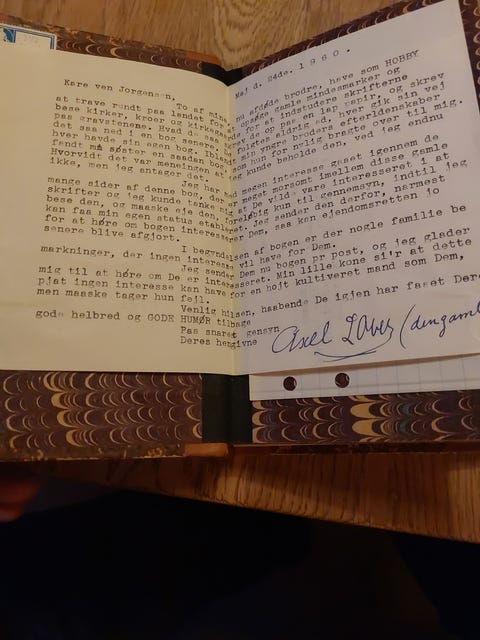 Maj d. 24de. 1960.
Kare ven Jorgensen,
To af mine nu afdøde brodre, have som HOBBY
at trave rundt paa landet for gamle mindesmarker og
bese kirker, kroer og kirkegaa for at indstudere skrifterne
paa gravstenene. Hvad de saa de op paa en lap papir, og skrev
det saa ned i en bog senere. fulgtes aldrig ad, hver gik sin vej
hver havde sin egen bog. Ibla min yngre broders efterldenskaber
fandt min søster en saadan bog hun for nylig bragte over til mig.
Hvorvidt det var meningen at kunde beholde den, ved jeg endnu
ikke, men jeg antager det.
Jeg har megen interesse gaaet igennem de
mange sider af denne bog, der meget morsomt imellem disse gamle
skrifter og jeg kunde tanke mig De vild vare interesseret i at
bese den, og maaske eje den, kun til gennemsyn, indtil jeg
kan faa min egen status etableret Jeg sender den derfor, narmest
for at høre om bogen interesser Dem, saa kan ejendomsretten jo
senere blive afgjort.
I begyndelsen af bogen er der nogle familie be
markninger, der ingen interesse vil have for Dem.
Jeg sender Dem nu bogen pr post, og jeg glader
mig til at høre om De er interesseret. Min lille kone si'r at dette
pjat ingen interesse kan have for en højt kultiveret mand som Dem,
men maaske tager hun fejl.
Venlig hilsen, haabende De igjen har faaet Deres
gode helbred og GODE HUMØR tilbage
Paa snaret gensyn
Deres hengivne
Axel (dengaml